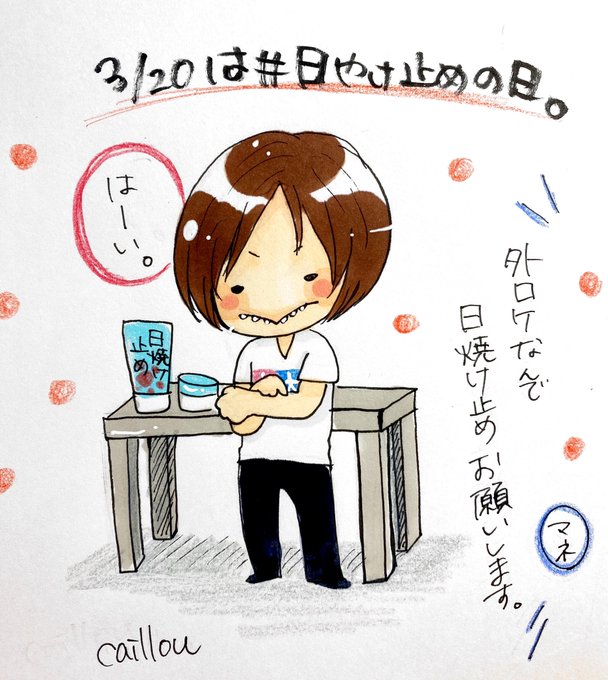 3/20は#日やけ止めの日。
はーい。
外ロケなんで
日焼け止めお願いします。
マネ
日焼け
止め
caillou